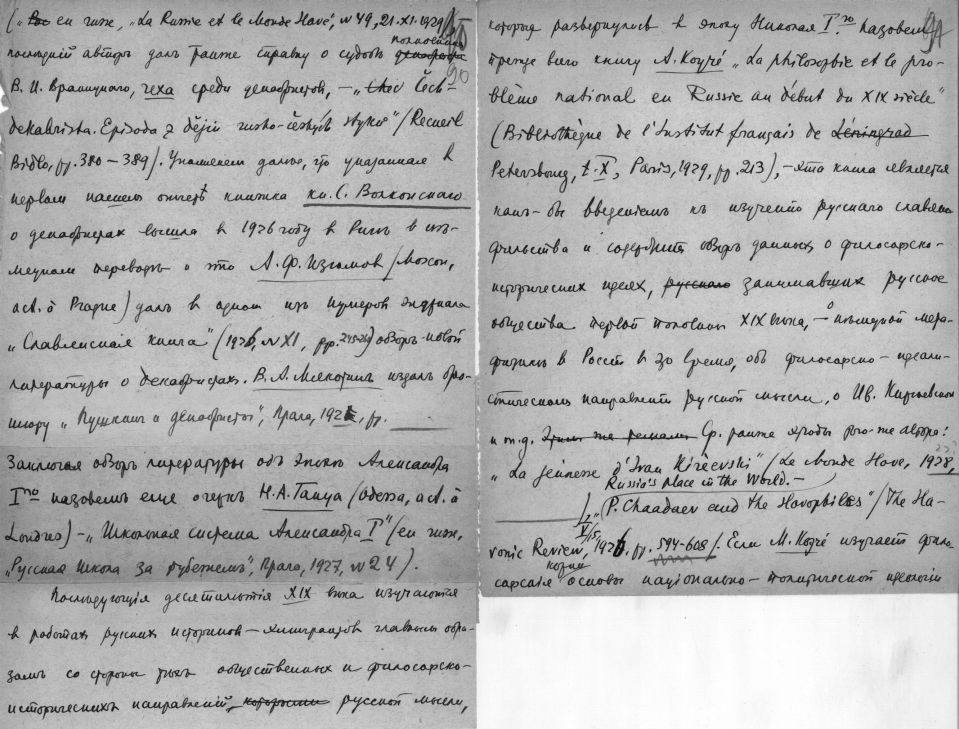 („ en russe, „La Russie et le Monde Slave", N 49, 21.XI.1929)
последній авторъ далъ также справку о судьбѣ полковника
В. И. Враницкаго, чеха среди декабристовъ, – „Čech-
dekabrista. Episoda z dějin rusko-českých styků" (Recueil
Bidlo, pp. 380–389). Упомянем далѣе, что указанная в
первом нашем отчетѣ книжка кн. С. Волконскаго
о декабристах вышла в 1926 году в в нѣ-
мецком переводѣ и что А. Ф. Изюмов (Moscou,
act. à Prague) далъ в одном изъ нумеров журнала
„Славянская книга" (1926, N XI, pp. ) обзоръ новой
литературы о декабристах. В. А. Мякотинъ издалъ бро-
шюру „Пушкинъ и декабристы", Прага, 192, pp.
Заключая обзоръ литературы объ эпохѣ Александра
Iго назовемъ еще очеркъ Н. А. Ганца (Odessa, act. à
Londres) – „Школьная система Александра I" (en russe,
„Русская Школа за рубежемъ", Прага, 1927, N 24).
Послѣдующія десятилѣтія XIX вѣка изучаются
в работах русских историков – эмигрантов главным обра-
зомъ со стороны тѣхъ общественных и философско-
историческихъ направленій, которыми русской мысли,
91
которыя развернулись в эпоху Николая Iго. Назовем
прежде всего книгу А. Койré „La philosophie et le pro-
blème national en Russie au début du XIX siècle"
(Bibliothèque de l'Institut français de Léningrad
Petersbourg, t. X, Paris, 1929, pp. 213), – эта книга является
какъ-бы введеніемъ къ изученію русскаго славяно
фильства и содержитъ обзоръ данных о философско-
исторических идеях, русского занимавших русское
общество первой половины XIX вѣка, – о нѣмецкой мета-
физикѣ в Россіи в это время, объ философско-идеали-
стическомъ направленіи русской мысли, о Ив. Кирѣевском
и т.д. Ср. также этюды того-же автора:
„La jeunesse d'Ivan Kiréevski" (Le Monde Slave, 1928,
Russia's place in the World. –
„P. Chaadaev and the Slavophiles" (The Sla-
vonic Review, V/15, 1926, pp. 594-608). Если М. Koyré изучает фило
софскіе корни основы національно-политической идеологіи